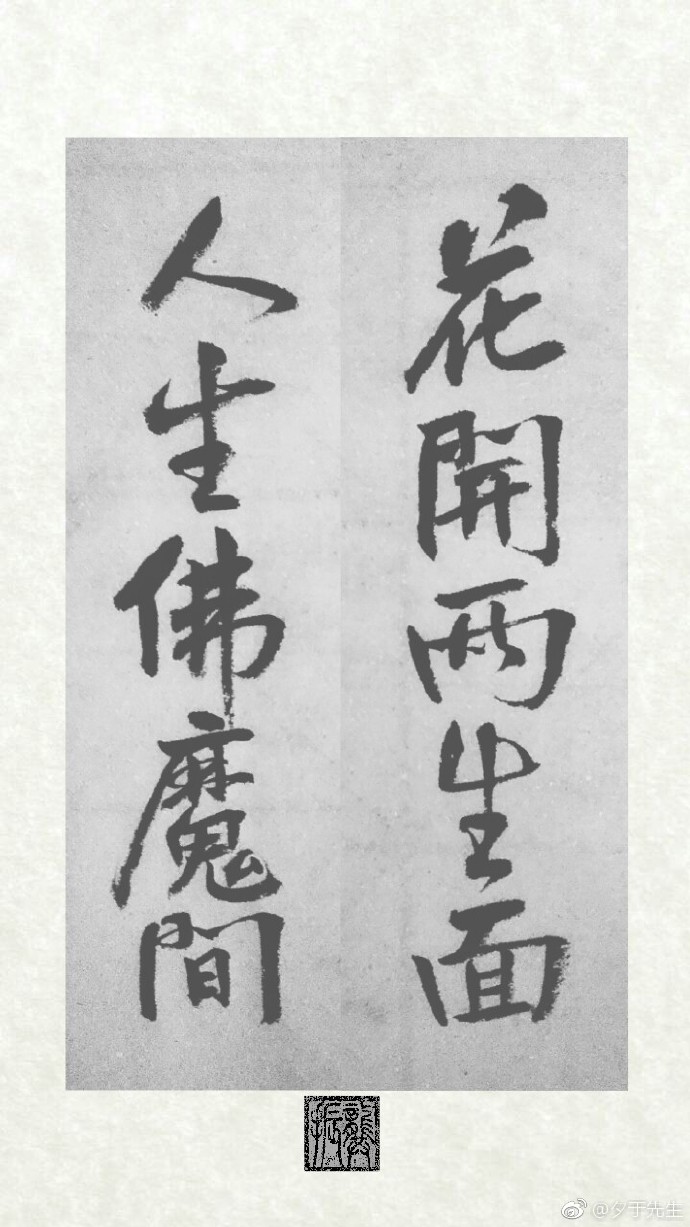 花開兩生面
人生佛魔間
@夕于先生